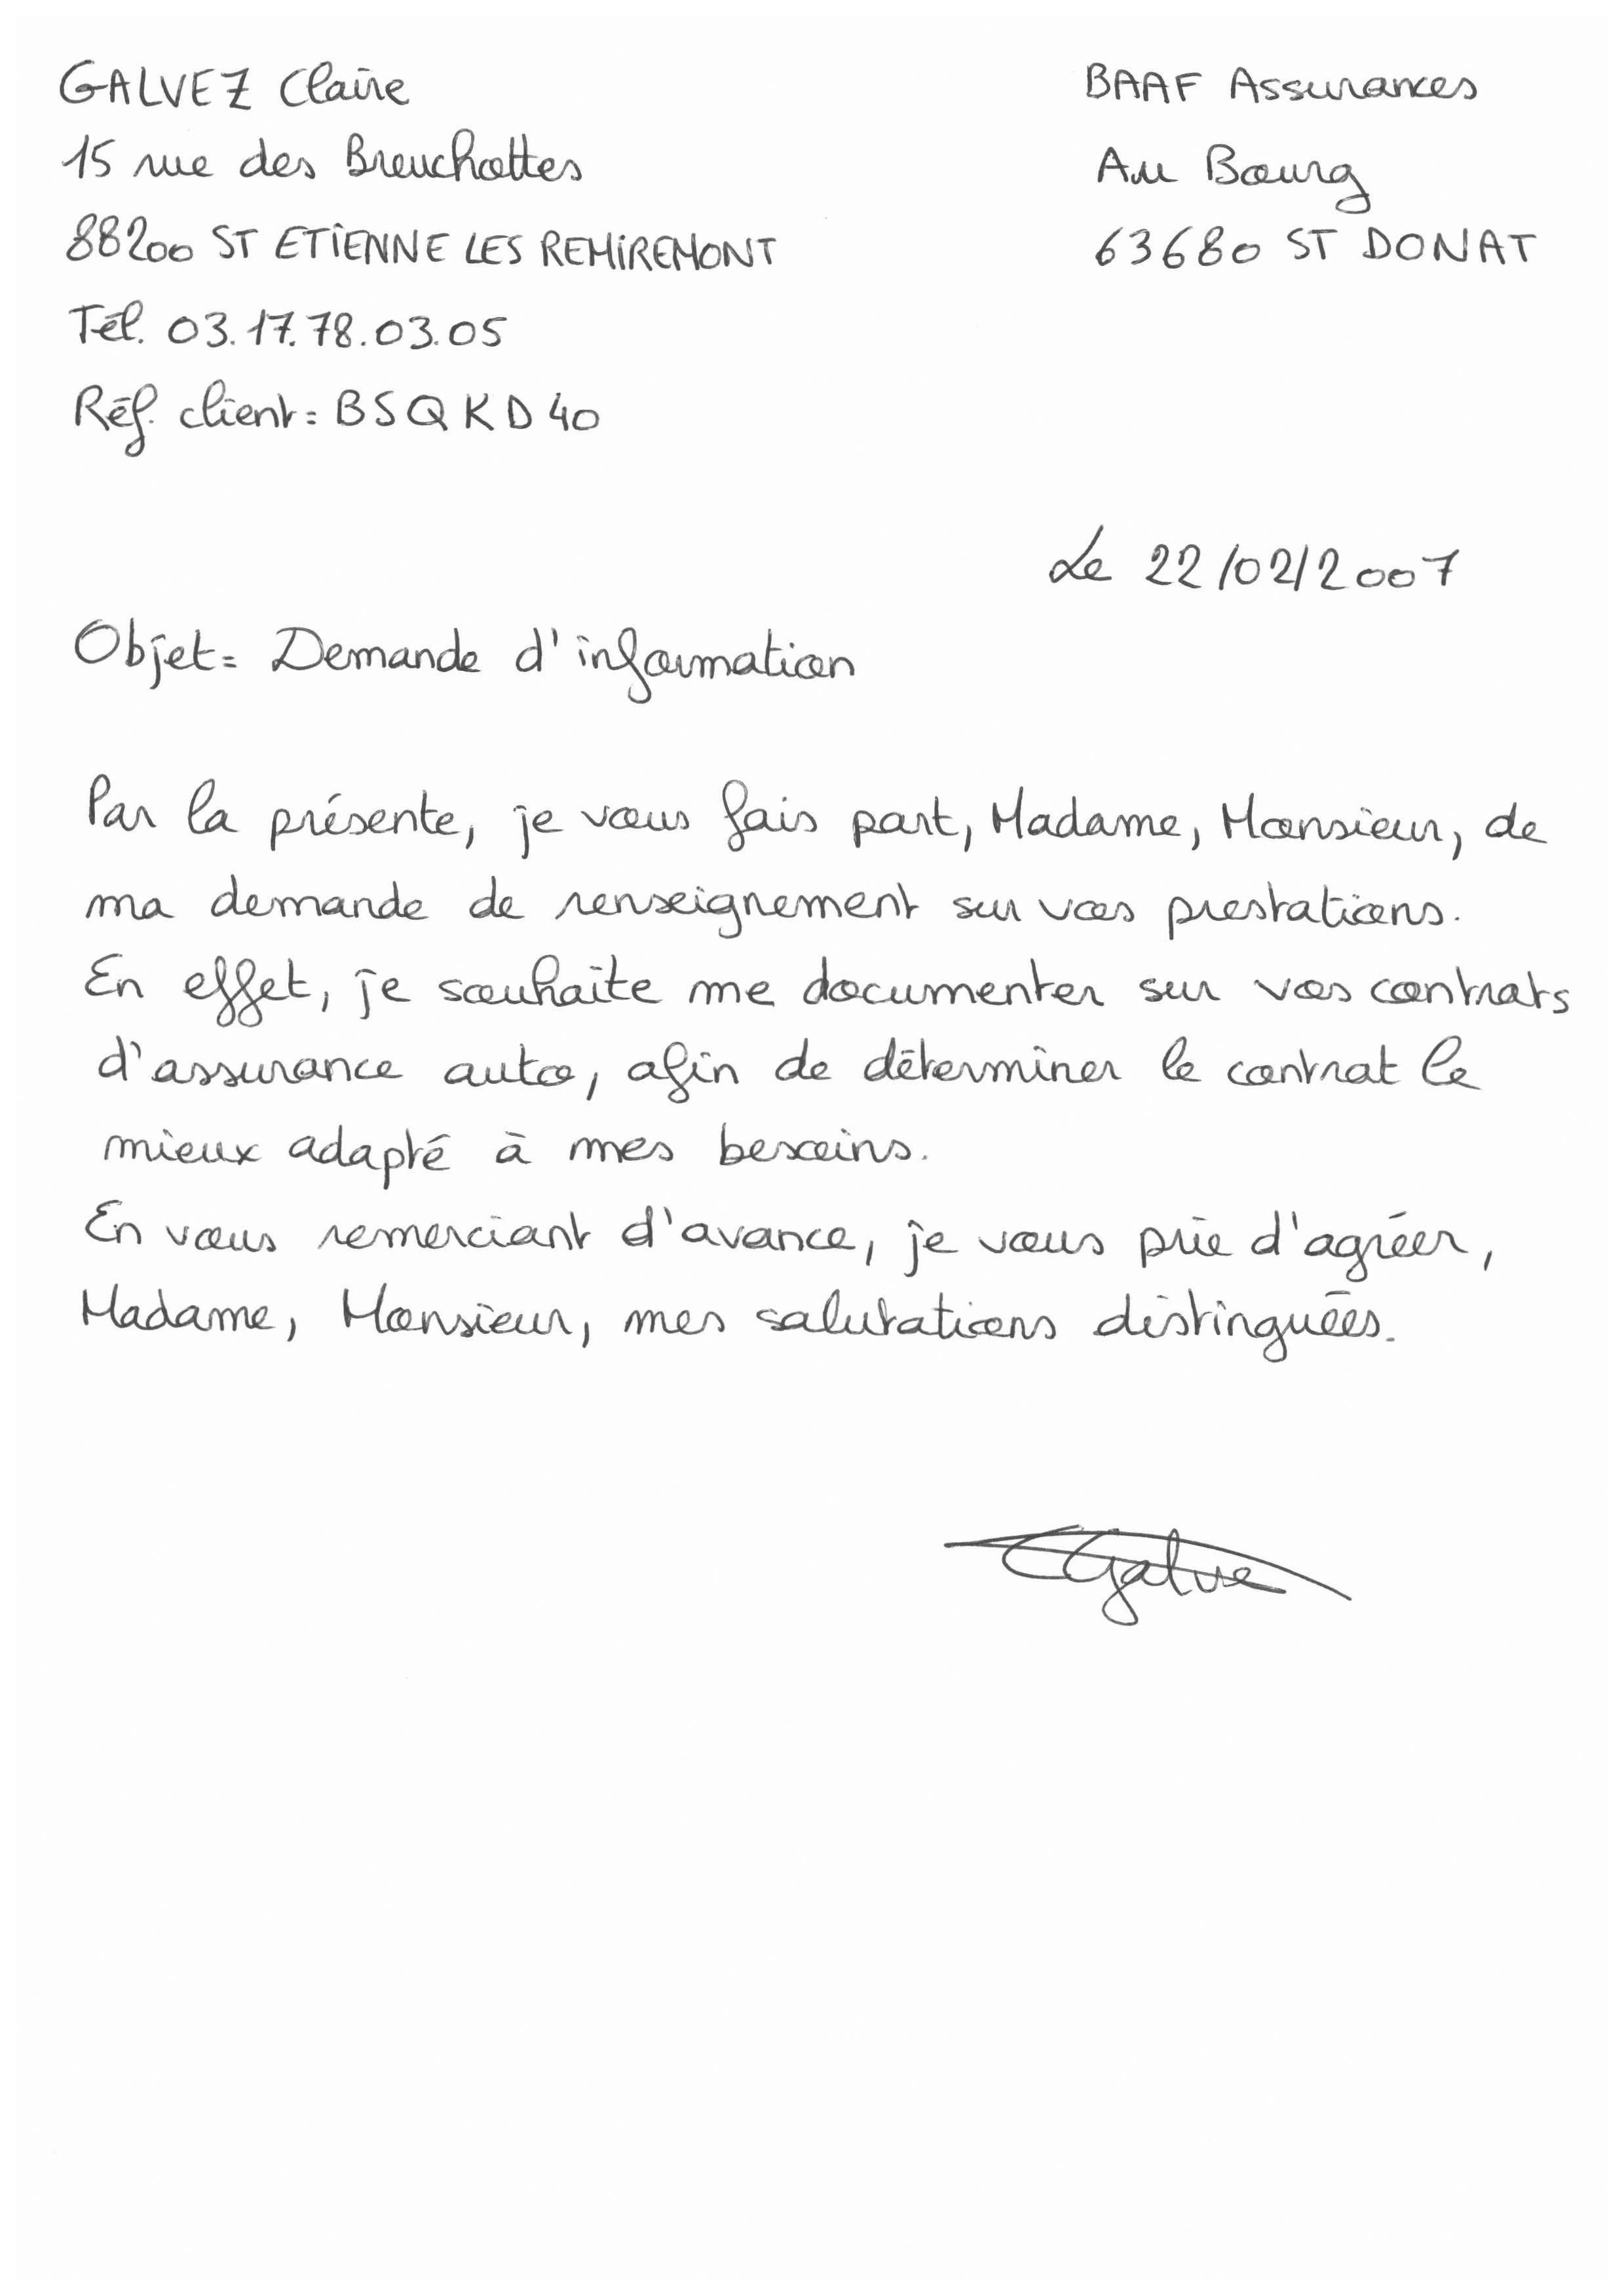 GALVEZ Claire
15 rue des Breuchottes
88200 ST ETIENNE LES REMIREMONT
Tél. 03.17.78.03.05
Réf. client : BSQKD40
BAAF Assurances
Au Bourg
63680 ST DONAT
Le 22/02/2007
Objet : Demande d'information
Par la présente, je vous fais part, Madame, Monsieur, de
ma demande de renseignement sur vos prestations.
En effet, je souhaite me documenter sur vos contrats
d'assurance auto, afin de déterminer le contrat le
mieux adapté à mes besoins.
En vous remerciant d'avance, je vous prie d'agréer,
Madame, Monsieur, mes salutations distinguées.